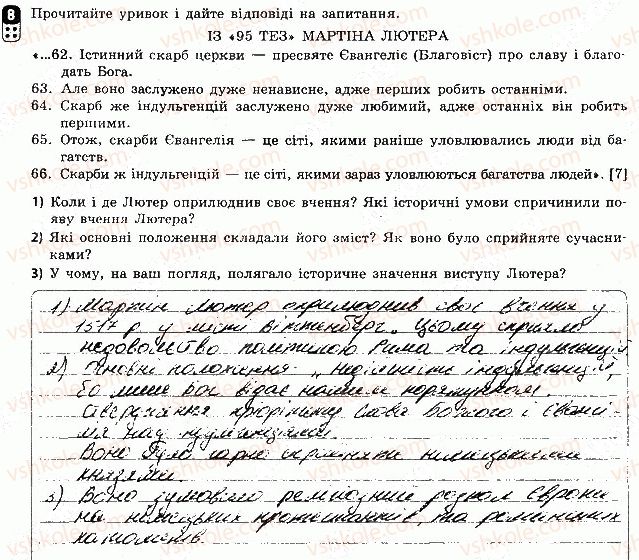 8 Прочитайте уривок і дайте відповіді на запитання.
ІЗ «95 ТЕЗ» МАРТІНА ЛЮТЕРА
«...62. Істинний скарб церкви — пресвяте Євангеліє (Благовіст) про славу і благо-
дать Бога.
63. Але воно заслужено дуже ненависне, адже перших робить останніми.
64. Скарб же індульгенцій заслужено дуже любимий, адже останніх він робить
першими.
65. Отож, скарби Євангелія — це сіті, якими раніше уловлювались люди від ба-
гатств.
66. Скарби ж індульгенцій — це сіті, якими зараз уловлюються багатства людей». [7]
1) Коли і де Лютер оприлюднив своє вчення? Які історичні умови спричинили по-
яву вчення Лютера?
2) Які основні положення складали його зміст? Як воно було сприйняте сучасни-
ками?
3) У чому, на ваш погляд, полягало історичне значення виступу Лютера?
1) Мартін Лютер оприлюднив своє вчення у
1517 р. у місті Віттенберг. Цьому сприяло
невдоволення політикою Рима та індульгенцій
2) Основні положення: індульгенцій,
бо лише Бог відає нашим порятунком.
Ствердження пріорітету слова Божого і Єванге-
лія над індульгенціями.
Воно було гарно сприйняте німецькими
князями.
3) Воно зумовило релігійний розкол Європи
на німецьких протестантів, та римських
католиків.
vshkole.com